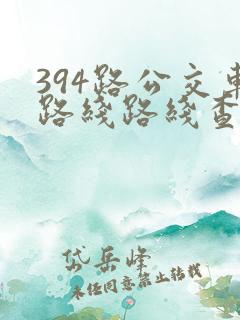 394路公交車
路线路线查
岱岳峰
未经同意禁止转载